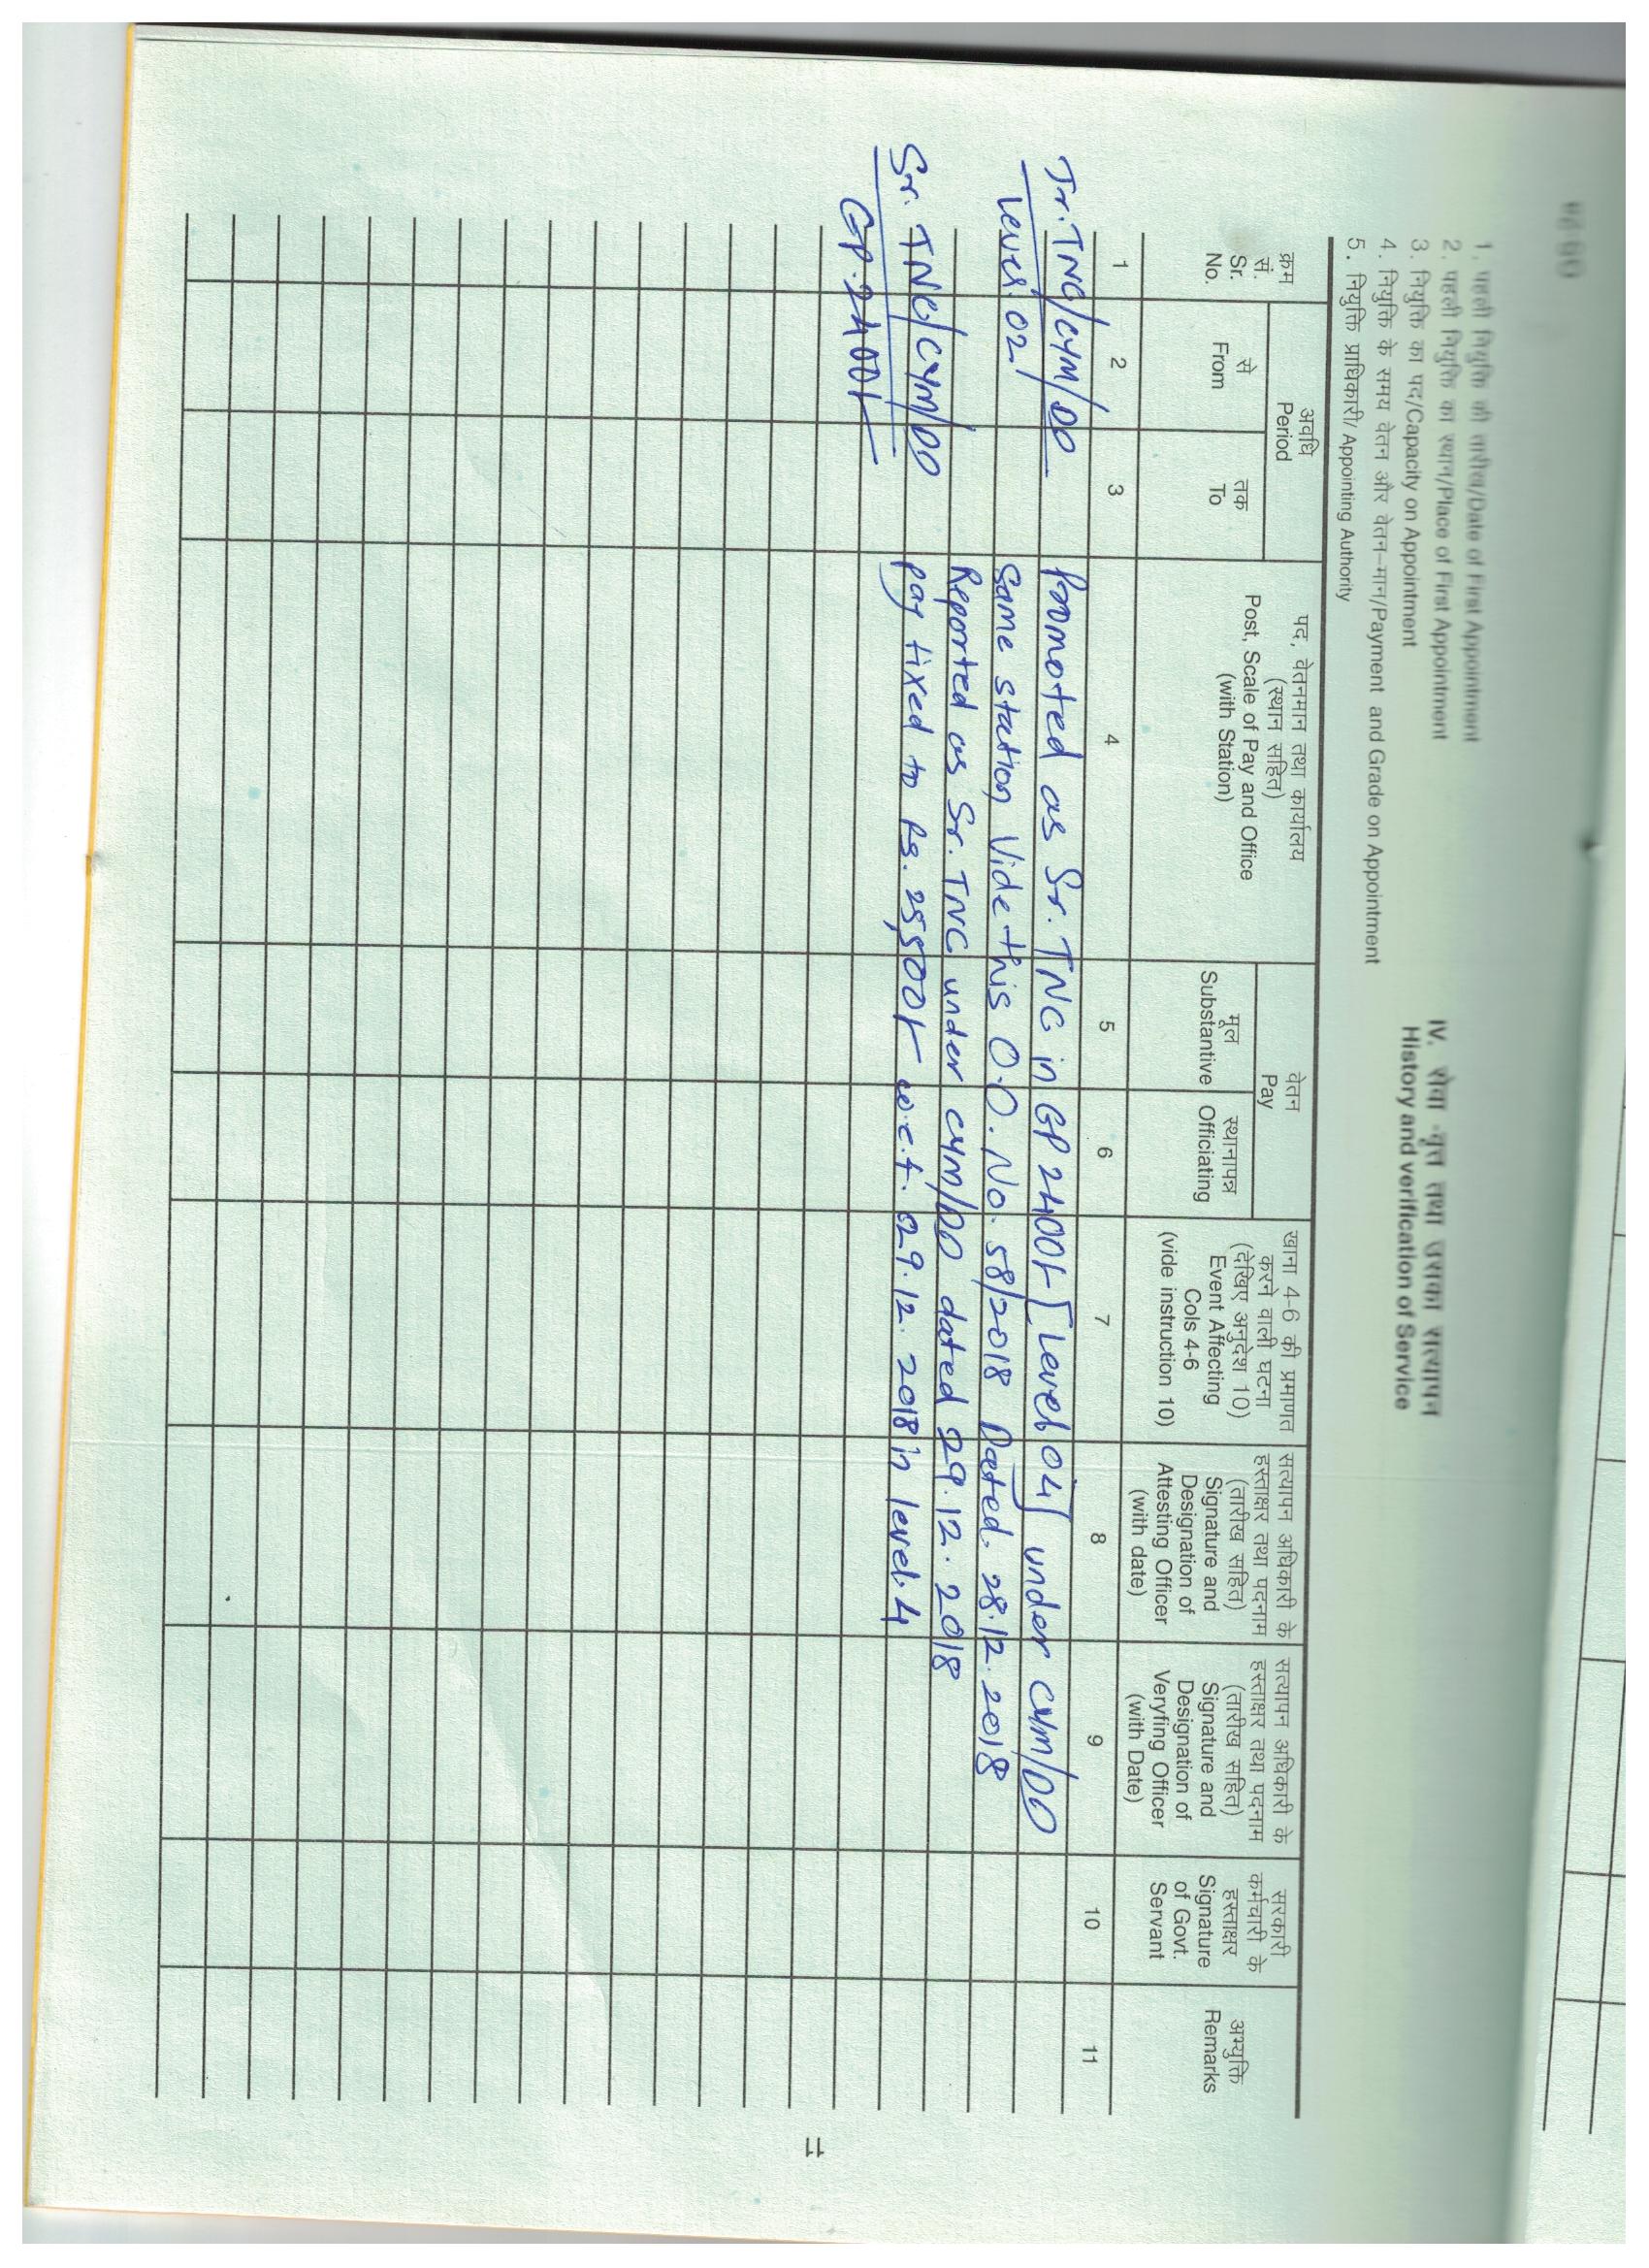 1. पहली नियुक्ति की तारीख/Date of First Appointment
2. पहली नियुक्ति का स्थान/Place of First Appointment
3. नियुक्ति का पद/Capacity on Appointment
4. नियुक्ति के समय वेतन और वेतन-मान/Payment and Grade on Appointment
5. नियुक्ति प्राधिकारी/ Appointing Authority
IV. सेवा -वृत्त तथा उसका सत्यापन
History and verification of Service
क्रम
सं.
Sr.
No.
अवधि
Period
से
From
तक
To
पद, वेतनमान तथा कार्यालय
(स्थान सहित)
Post, Scale of Pay and Office
(with Station)
वेतन
Pay
मूल
Substantive
स्थानापन्न
Officiating
खाना 4-6 की प्रमाणत
करने वाली घटना
(देखिए अनुदेश 10)
Event Affecting
Cols 4-6
(vide instruction 10)
सत्यापन अधिकारी के
हस्ताक्षर तथा पदनाम
(तारीख सहित)
Signature and
Designation of
Attesting Officer
(with date)
सत्यापन अधिकारी के
हस्ताक्षर तथा पदनाम
(तारीख सहित)
Signature and
Designation of
Veryfing Officer
(with Date)
सरकारी
कर्मचारी के
हस्ताक्षर
Signature
of Govt.
Servant
अभ्युक्ति
Remarks
1 2 3 4 5 6 7 8 9 10 11
Jr. TNC/CYM/DD Promoted as Sr. TNC in GP 2400/- [Level 04] under CYM/DD
level. 02 Same station Vide this O.O. No. 58/2018 Dated. 28.12.2018
Reported as Sr. TNC under CYM/DD dated 29.12.2018
Sr. TNC/CYM/DD pay fixed to Rs. 25,500/- w.e.f. 29.12.2018 in level. 4
GP. 2400/-
11